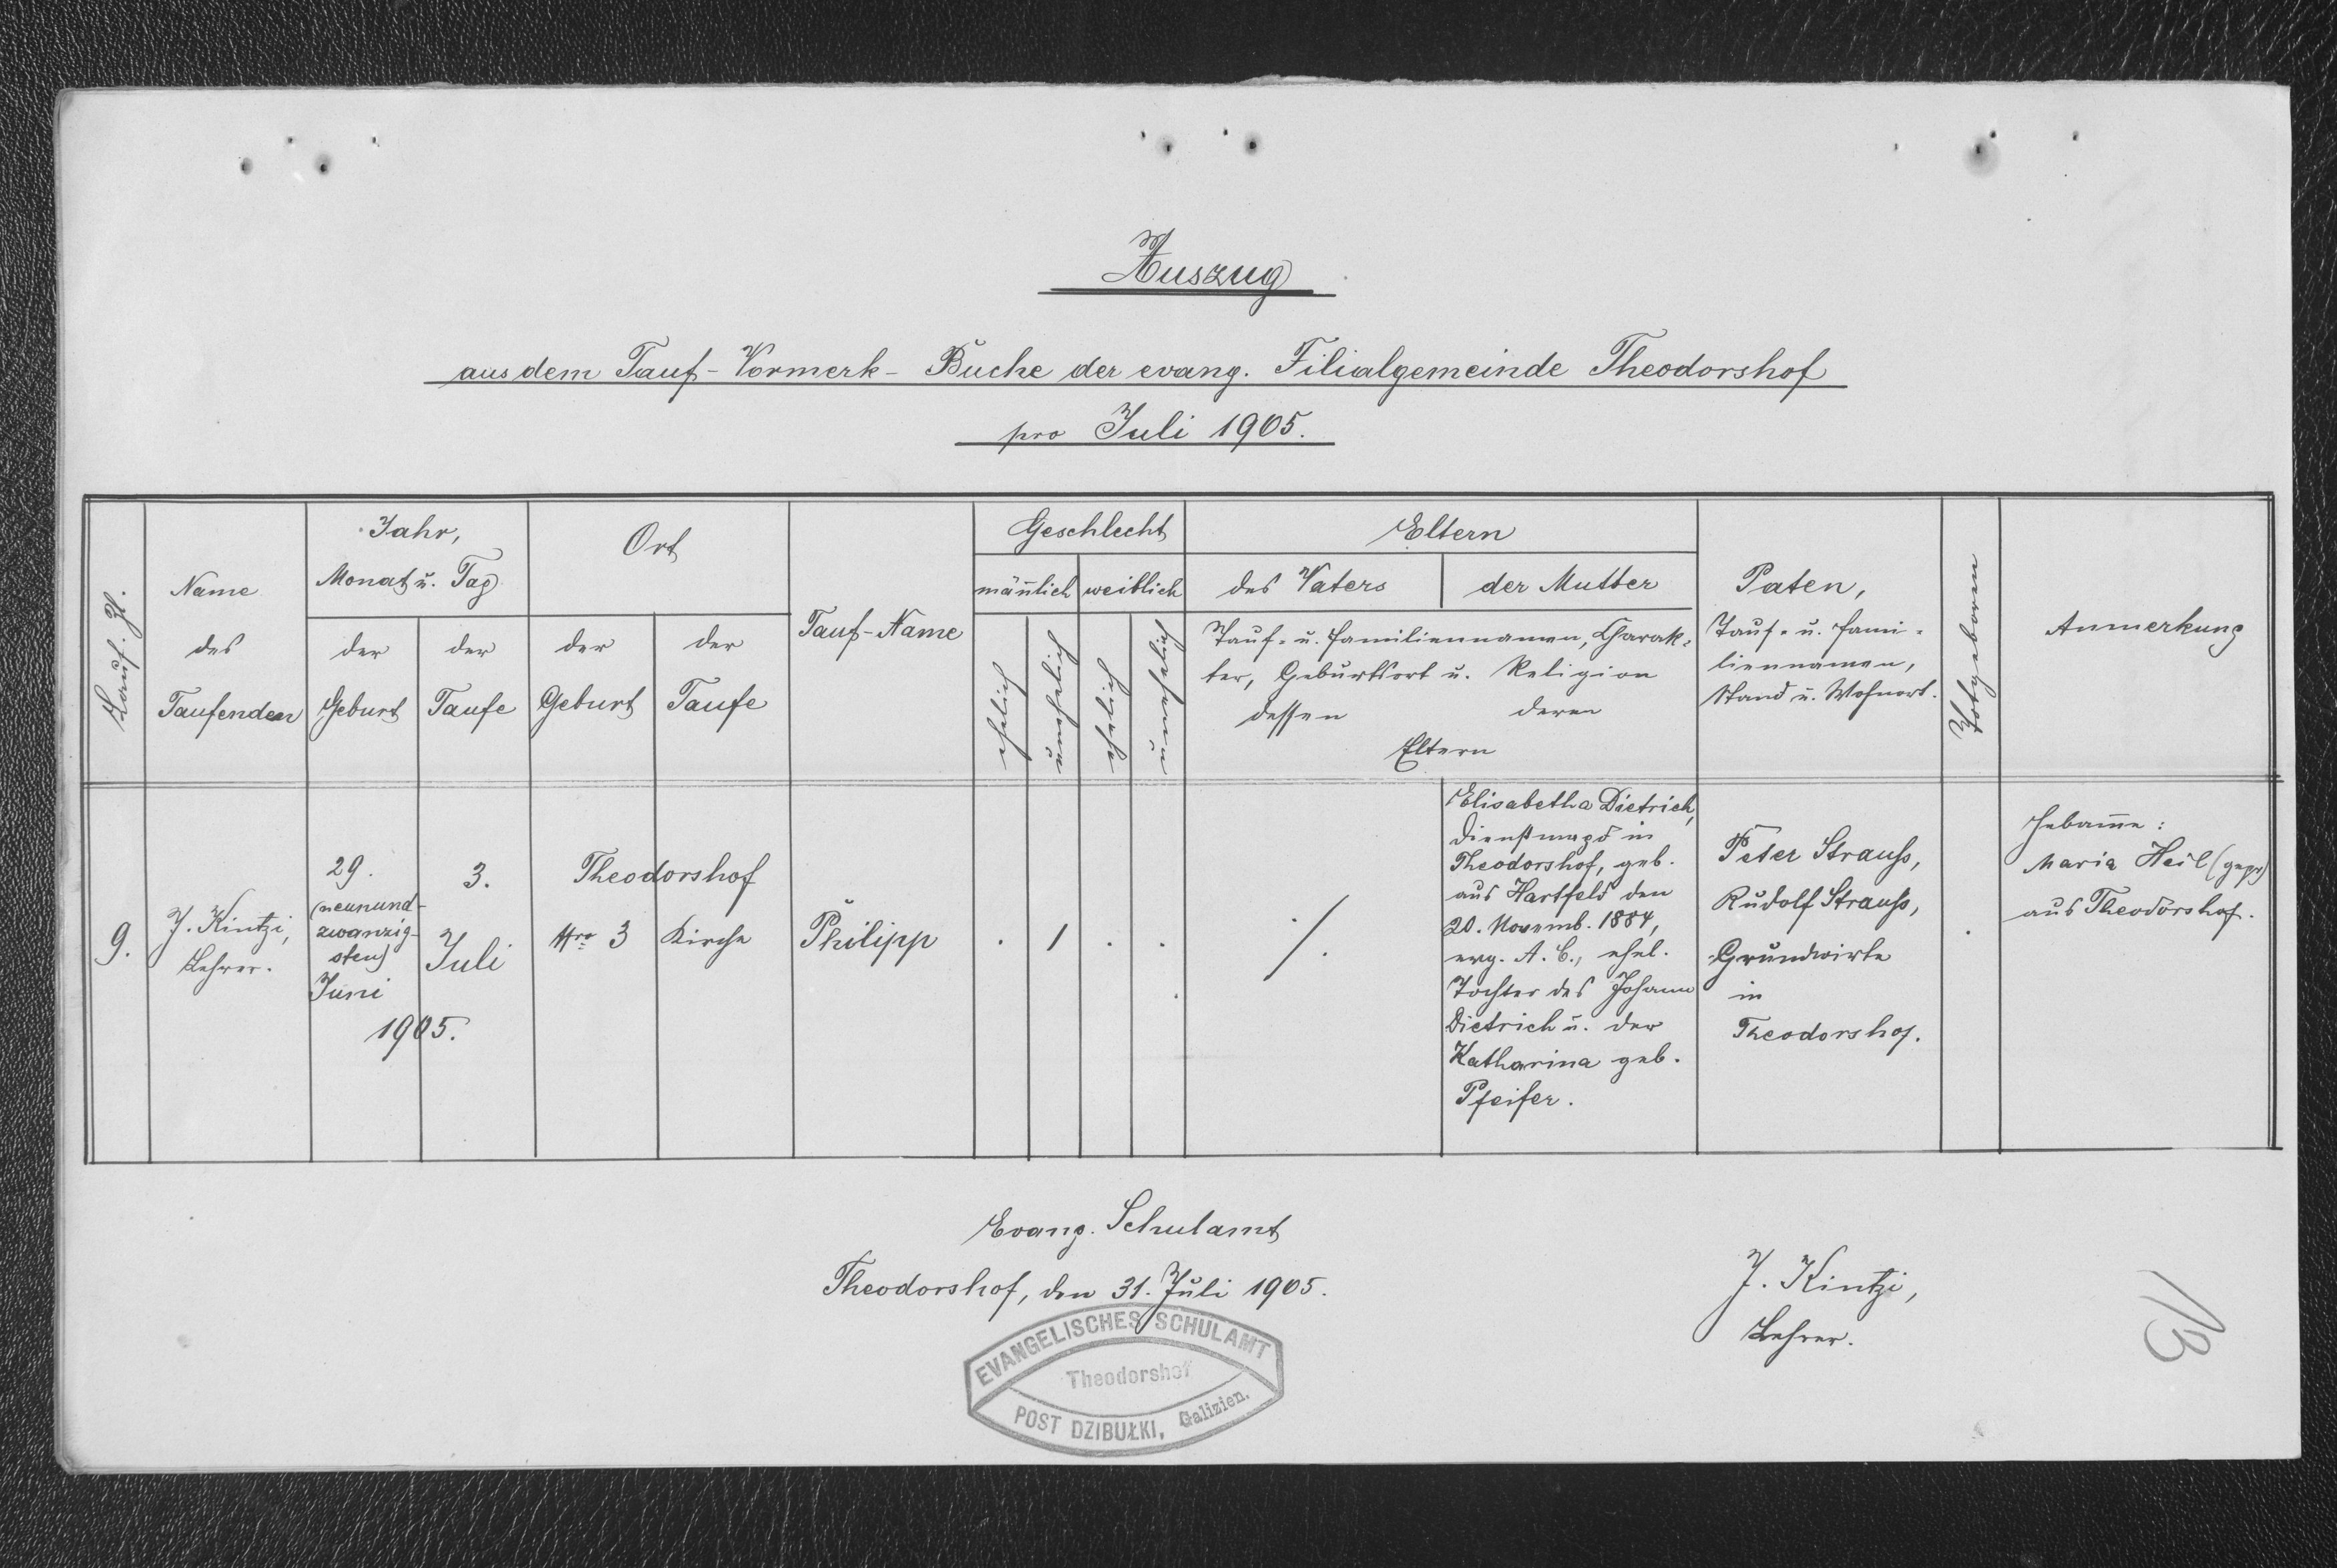 Auszug
aus dem Tauf-Vormerk-Buche der evang. Filialgemeinde Theodorshof
pro Juli 1905.
Lauf. Zl.
Name
des
Taufenden
Jahr,
Monat u. Tag
der
Geburt
der
Taufe
Ort
der
Geburt
der
Taufe
Tauf-Name
Geschlecht
männlich
weiblich
ehelich
unehelich
ehelich
unehelich
Eltern
des Vaters
der Mutter
Tauf- u. Familiennamen, Charak-
ter, Geburtsort u. Religion
dessen
deren
Eltern
Paten,
Tauf- u. Fami-
liennamen,
Stand u. Wohnort.
Totgeboren
Anmerkung
9.
J. Kintzi,
Lehrer.
29.
(neunund-
zwanzig-
sten)
Juni
3.
Juli
1905.
Theodorshof
Nro 3
Kirche
Philipp
.
1
.
.
./.
Elisabetha Dietrich,
Dienstmagd in
Theodorshof, geb.
aus Hartfeld den
20. Novemb. 1884,
evg. A. C., ehel.
Tochter des Johann
Dietrich u. der
Katharina geb.
Pfeifer.
Peter Strauss,
Rudolf Strauss,
Grundwirte
in
Theodorshof.
.
Hebamme:
Maria Heil (gepr)
aus Theodorshof.
Evang. Schulamt
Theodorshof, den 31. Juli 1905.
J. Kintzi,
Lehrer.
13
EVANGELISCHES SCHULAMT
Theodorshof
POST DZIBUŁKI, Galizien.